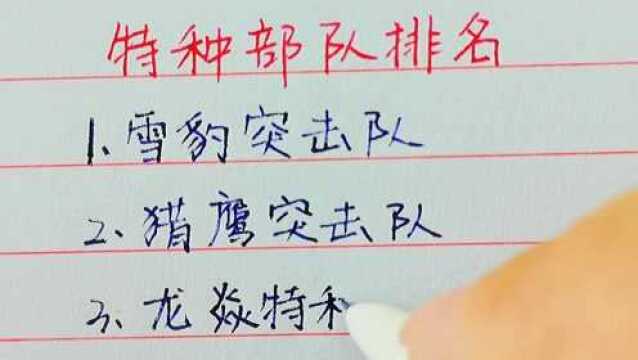 特种部队排名
1、雪豹突击队
2、猎鹰突击队
3、龙焱特